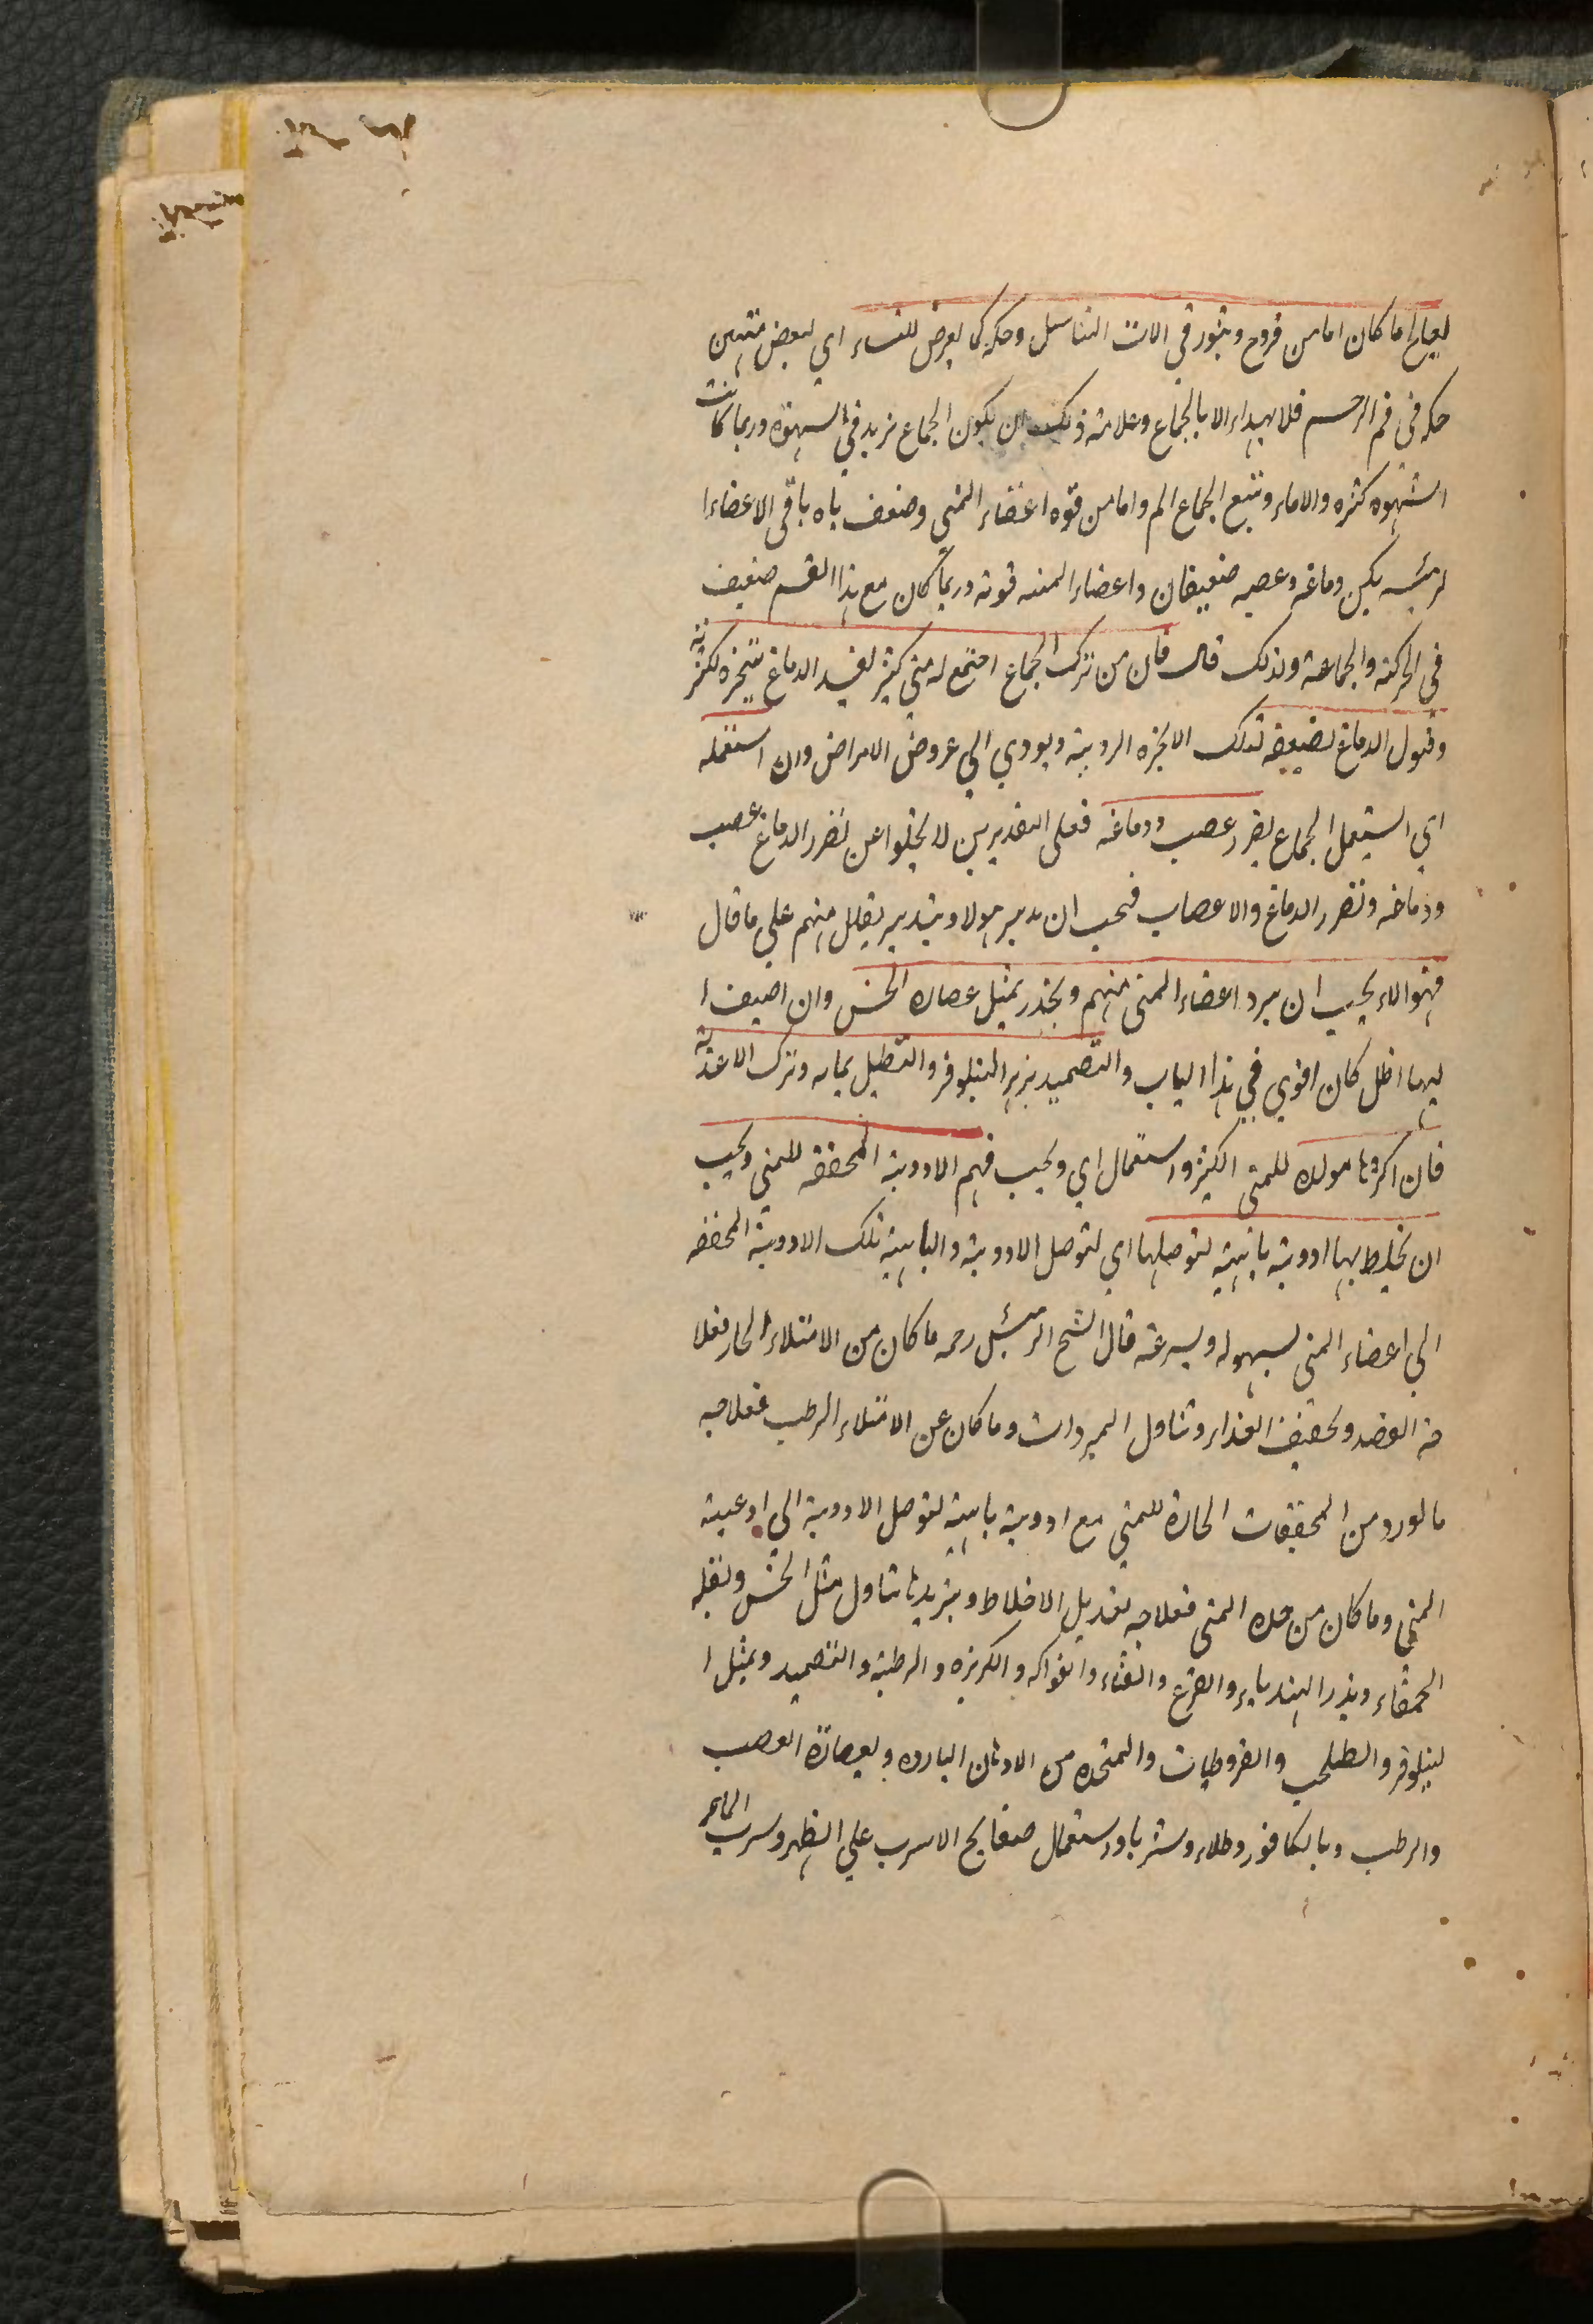 لعيالج ما كان اما من قروح وبثور في الات التناسل وحكه كما يعرض للنساء اي لبعض منهن
حكه في فم الرحم فلا يهداء الا بالجماع وعلامة ذلك ان يكون الجماع يزيد في الشهوة وربما كانت
الشهوه كثره والاماء ويتبع الجماع الم واما من قوه اعضاء المني وضعف باه باقي الاعضاء ا
لرئيسه يكن دماغه وعصبه ضعيفان واعضاء المنه قوته وربما كان مع هذا القسم ضعيف
في الحركته والجماعة ولذلك قال فان من ترك الجماع اجتمع له مني كثير يفسد الدماغ بتبخره لكثرته
وقبول الدماغ لضعفه تلك الابخره الرديئة ويودي الي عروض الامراض وان استعمله
اي استعمل الجماع يضر عصب ودماغه فعلى التقديرين لا يخلوا عن تضرر الدماغ عصب
ودماغه وتضرر الدماغ والاعصاب فيجب ان يدبر هولاء بتدبير يقلل منهم علي ما قال
فهوالاء يجب ان يبرد اعضاء المني منهم ويخدر بمثل عصاره الخس وان اضيف ا
ليها الخل كان اقوي في هذا الباب والتضميد بزهر النيلوفر والتنطيل بمايه وترك الاغذية
فان اكثرها مولده للمني الكثير واستعمال اي ويجب فيهم الادوية المجففه للمني ويجب
ان يخلط بها ادوية باهية لتوصلها اي لتوصل الادوية والباهية تلك الادوية المجففه
الي اعضاء المني بسهوله وبسرعه قال الشيخ الرئيس رحمه ما كان من الامتلاء الحار فعلا
جه الفصد وتخفيف الغذاء وتناول المبردات وما كان عن الامتلاء الرطب فعلاجه
مالورد من المجففات الحارة للمني مع ادوية باهية لتوصل الادوية الي اوعية
المني وما كان من حده المني فعلاجه تعديل الاخلاط وتبريدها بتناول مثل الخس وبقله
الحمقاء وبذر الهندباء والقرع والقثاء والفواكه والكزبزه والرطبة والتضميد وبمثل ا
لنيلوفر والطلحب والقروطيات والمتخذه من الادهان البارده وبعصارة العصب
والرطب وبالكافور وطلاء وشربا واستعمال صفايح الاسرب علي الظهر وشرب الماء